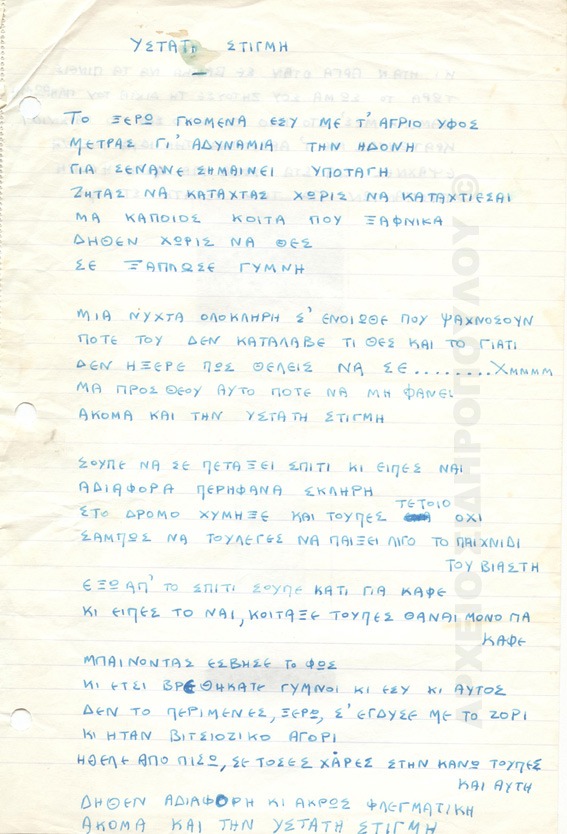 ΥΣΤΑΤΗ ΣΤΙΓΜΗ
ΤΟ ΞΕΡΩ ΓΚΟΜΕΝΑ ΕΣΥ ΜΕ Τ' ΑΓΡΙΟ ΥΦΟΣ
ΜΕΤΡΑΣ ΓΙ' ΑΔΥΝΑΜΙΑ ΤΗΝ ΗΔΟΝΗ
ΓΙΑ ΣΕΝΑΝΕ ΣΗΜΑΙΝΕΙ ΥΠΟΤΑΓΗ
ΖΗΤΑΣ ΝΑ ΚΑΤΑΧΤΑΣ ΧΩΡΙΣ ΝΑ ΚΑΤΑΧΤΙΕΣΑΙ
ΜΑ ΚΑΠΟΙΟΣ ΚΟΙΤΑ ΠΟΥ ΞΑΦΝΙΚΑ
ΔΗΘΕΝ ΧΩΡΙΣ ΝΑ ΘΕΣ
ΣΕ ΞΑΠΛΩΣΕ ΓΥΜΝΗ
ΜΙΑ ΝΥΧΤΑ ΟΛΟΚΛΗΡΗ Σ' ΕΝΟΙΩΘΕ ΠΟΥ ΨΑΧΝΟΣΟΥΝ
ΠΟΤΕ ΤΟΥ ΔΕΝ ΚΑΤΑΛΑΒΕ ΤΙ ΘΕΣ ΚΑΙ ΤΟ ΓΙΑΤΙ
ΔΕΝ ΗΞΕΡΕ ΠΩΣ ΘΕΛΕΙΣ ΝΑ ΣΕ........ΧΜΜΜΜ
ΜΑ ΠΡΟΣ ΘΕΟΥ ΑΥΤΟ ΠΟΤΕ ΝΑ ΜΗ ΦΑΝΕΙ
ΑΚΟΜΑ ΚΑΙ ΤΗΝ ΥΣΤΑΤΗ ΣΤΙΓΜΗ
ΣΟΥΠΕ ΝΑ ΣΕ ΠΕΤΑΞΕΙ ΣΠΙΤΙ ΚΙ ΕΙΠΕΣ ΝΑΙ
ΑΔΙΑΦΟΡΑ ΠΕΡΗΦΑΝΑ ΣΚΛΗΡΗ
ΣΤΟ ΔΡΟΜΟ ΧΥΜΗΞΕ ΚΑΙ ΤΟΥΠΕΣ ΤΕΤΟΙΟ ΟΧΙ
ΣΑΜΠΩΣ ΝΑ ΤΟΥΛΕΓΕΣ ΝΑ ΠΑΙΞΕΙ ΛΙΓΟ ΤΟ ΠΑΙΧΝΙΔΙ
ΤΟΥ ΒΙΑΣΤΗ
ΕΞΩ ΑΠ' ΤΟ ΣΠΙΤΙ ΣΟΥΠΕ ΚΑΤΙ ΓΙΑ ΚΑΦΕ
ΚΙ ΕΙΠΕΣ ΤΟ ΝΑΙ, ΚΟΙΤΑΞΕ ΤΟΥΠΕΣ ΘΑΝΑΙ ΜΟΝΟ ΓΙΑ
ΚΑΦΕ
ΜΠΑΙΝΟΝΤΑΣ ΕΣΒΗΣΕ ΤΟ ΦΩΣ
ΚΙ ΕΤΣΙ ΒΡΕΘΗΚΑΤΕ ΓΥΜΝΟΙ ΚΙ ΕΣΥ ΚΙ ΑΥΤΟΣ
ΔΕΝ ΤΟ ΠΕΡΙΜΕΝΕΣ, ΞΕΡΩ, Σ' ΕΓΔΥΣΕ ΜΕ ΤΟ ΖΟΡΙ
ΚΙ ΗΤΑΝ ΒΙΤΣΙΟΖΙΚΟ ΑΓΟΡΙ
ΗΘΕΛΕ ΑΠΟ ΠΙΣΩ, ΣΕ ΤΟΣΕΣ ΧΑΡΕΣ ΣΤΗΝ ΚΑΝΩ ΤΟΥΠΕΣ
ΚΑΙ ΑΥΤΗ
ΔΗΘΕΝ ΑΔΙΑΦΟΡΗ ΚΙ ΑΚΡΩΣ ΦΛΕΓΜΑΤΙΚΗ
ΑΚΟΜΑ ΚΑΙ ΤΗΝ ΥΣΤΑΤΗ ΣΤΙΓΜΗ